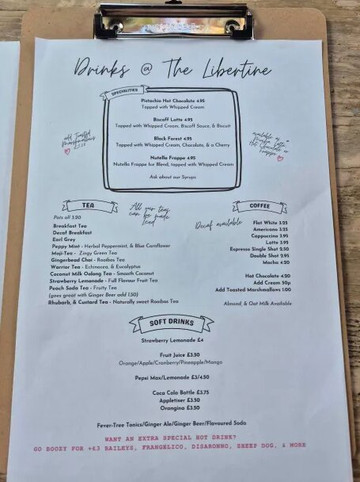 Drinks @ The Libertine
SPECIALITIES
Pistachio Hot Chocolate 4.95
Topped with Whipped Cream
Biscoff Latte 4.95
Topped with Whipped Cream, Biscoff Sauce, & Biscuit
Black Forest 4.95
Topped with Whipped Cream, Chocolate, & a Cherry
Nutella Frappe 4.95
Nutella Frappe Ice Blend, topped with Whipped Cream
Ask about our Syrups
add Toasted Marshmallows
TEA
Pots all 3.20
Breakfast Tea
Decaf Breakfast
Earl Grey
Peppy Mint - Herbal Peppermint, & Blue Cornflower
Moji-Tea - Zingy Green Tea
Gingerbread Chai - Rooibos Tea
Warrior Tea - Echinacea, & Eucalyptus
Coconut Milk Oolong Tea - Smooth Coconut
Strawberry Lemonade - Full Flavour Fruit Tea
Peach Soda Tea - Fruity Tea
(goes great with Ginger Beer add 1.50)
Rhubarb & Custard Tea - Naturally sweet Rooibos Tea
All our teas can be made Iced
Decaf available
COFFEE
Flat White 3.55
Americano 3.25
Cappuccino 3.95
Latte 3.95
Espresso Single Shot 2.50
Double Shot 2.95
Mocha 4.20
Hot Chocolate 4.20
Add Cream 50p
Add Toasted Marshmallows 1.00
Almond, & Oat Milk Available
SOFT DRINKS
Strawberry Lemonade £4
Fruit Juice £3.50
Orange/Apple/Cranberry/Pineapple/Mango
Pepsi Max/Lemonade £3/4.50
Coca Cola Bottle £3.75
Appletiser £3.50
Orangina £3.50
Fever-Tree Tonics/Ginger Ale/Ginger Beer/Flavoured Soda
WANT AN EXTRA SPECIAL HOT DRINK?
GO BOOZY FOR +£3 BAILEYS, FRANGELICO, DISARONNO, SHEEP DOG, & MORE